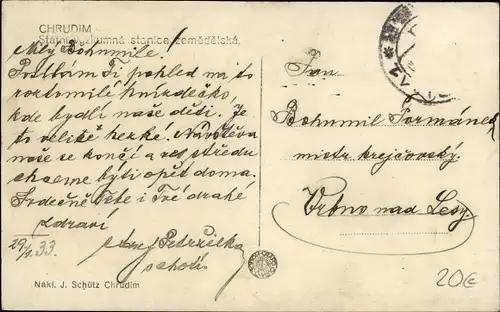 CHRUDIM
Státní výzkumná stanice zemědělská.
Milý Bohumile!
Posílám Ti pohled na to
roztomilé hnízdečko,
kde bydlí naše děti. Je
to veliké hezké. Návštěva
naše se končí a ve středu
chceme býti opět doma.
Srdečně Tebe i Tvé drahé
zdraví
29/ 33.
Petržilka
s chotí.
Nakl. J. Schütz Chrudim
Pan
Bohumil Formánek
mistr krejčovský
Vrbno nad Lesy.
20€